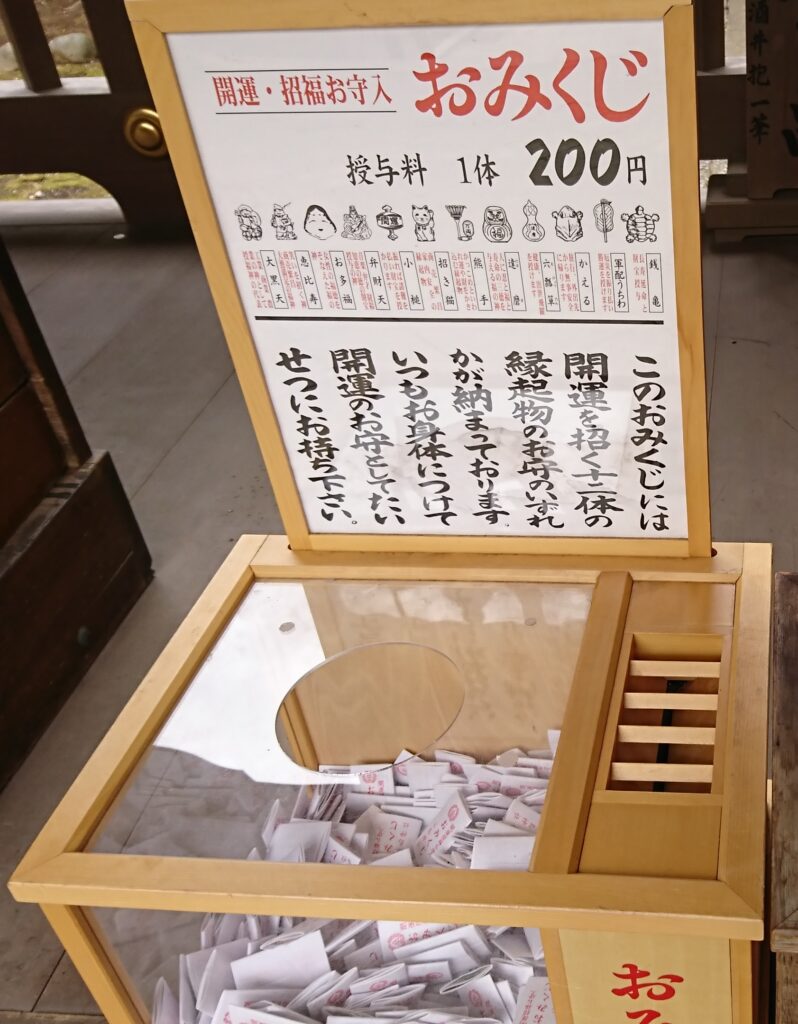 開運・招福お守入
おみくじ
授与料 1体 200円
銭亀
軍配うちわ
かえる
六瓢箪
達磨
熊手
招き猫
小槌
弁財天
お多福
恵比寿
大黒天
このおみくじには
開運を招く十二体の
縁起物のお守のいずれ
かが納まっております。
いつもお身体につけて
開運のお守としてたい
せつにお持ち下さい。
酒井抱一筆
おみくじ
おみ